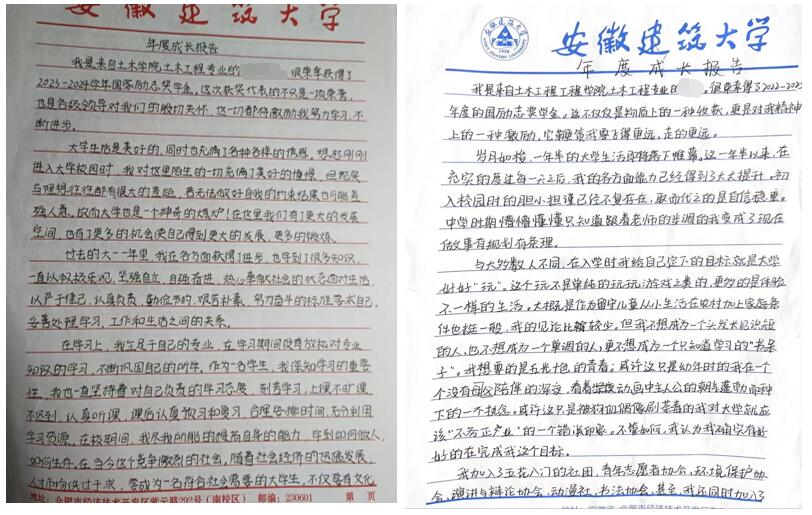 安徽建筑大学
年度成长报告
我是来自土木学院土木工程专业的 很荣幸获得了
2023-2024学年国家励志奖学金。这次获奖代表的不只是一项荣誉,
也是各级领导对我们的殷切关怀,这一切都将激励我努力学习,不
断进步。
大学生活是美好的,同时也充满了各种各样的诱惑。想起刚刚
进入大学校园时,我对这里陌生的一切充满了美好的憧憬,但现实
与理想往往都有很大的差距,若无法做好自我的约束结果也可能差
强人意。故而大学也是一个神奇的炼炉!在这里我们有了更大的发展
空间,也有了更多的机会使自己得到更大的发展,更多的锻炼。
过去的大一一年里,我在各方面获得了进步,也学到了很多知识,
一直以积极乐观,坚强自立,自强奋进,热心奉献社会的状态面对生活
以严于律己,认真负责,勤俭节约,艰苦朴素,努力奋斗的标准要求自己,
妥善处理学习、工作和生活之间的关系。
在学习上,我立足于自己的专业,在学习期间没有放松对专业
知识的学习,不断巩固自己的所学。作为一名学生,我深知学习的重要
性,我也一直坚持着对自己负责的学习态度,刻苦学习,上课不旷课
不迟到,认真听课,课后认真预习和复习,合理安排时间,充分利用
学习资源。在校期间,我尽我所能的提高自身的能力,学到如何做人,
如何生存。在当今这个竞争激烈的社会,随着社会经济的迅猛发展,
人才市场供过于求,要成为一名符合社会需要的大学生,不仅要有文化
地址:合肥市经济技术开发区紫云路292号(南校区) 邮编:230601 第 页
安徽建筑大学
年度成长报告
我是来自土木工程学院土木工程专业的 。很荣幸得了2022-2023
年度的国励志奖学金。这不仅仅是物质上的一种收获,更是对我精神
上的一种激励,它鞭策我要飞得更远,走的更远。
岁月如梭,一年半的大学生活即将落下帷幕。这一年半以来,在
充实的度过每一天之后,我的各方面能力已经得到了大大提升。初
入校园时的胆小担谨已经不复存在,取而代之的是自信稳重。
中学时期懵懵懂懂只知道跟着老师的步调的我变成了现在
做事有规划有条理。
与大多数人不同,在入学时我给自己定下的目标就是大学
好好“玩”。这个玩不是单纯的玩玩游戏之类的,更多的是体验
不一样的生活。大概是作为留守儿童从小生活在农村加上家庭条
件也挺一般,我的见识比较少。但我不想成为一个头发大见识短
的人,也不想成为一个单调的人,更不想成为一个只知道学习的“书呆
子”。我想要的是五光十色的青春;或许这只是幼年时的我在一个
个没有母父陪伴的深夜,看着动画中主人公的朝气蓬勃而种
下的一个执念。或许这只是被狗血偶像剧荼毒的我对大学就应
该“不务正产业”的一个错误印象。不管如何,我认为我确实有好
好的在完成我这个目标。
我加入了五花八门的社团,青年志愿者协会,环境保护协
会,演讲与辩论协会,动漫社,书法协会,甚至,我还同时加入了